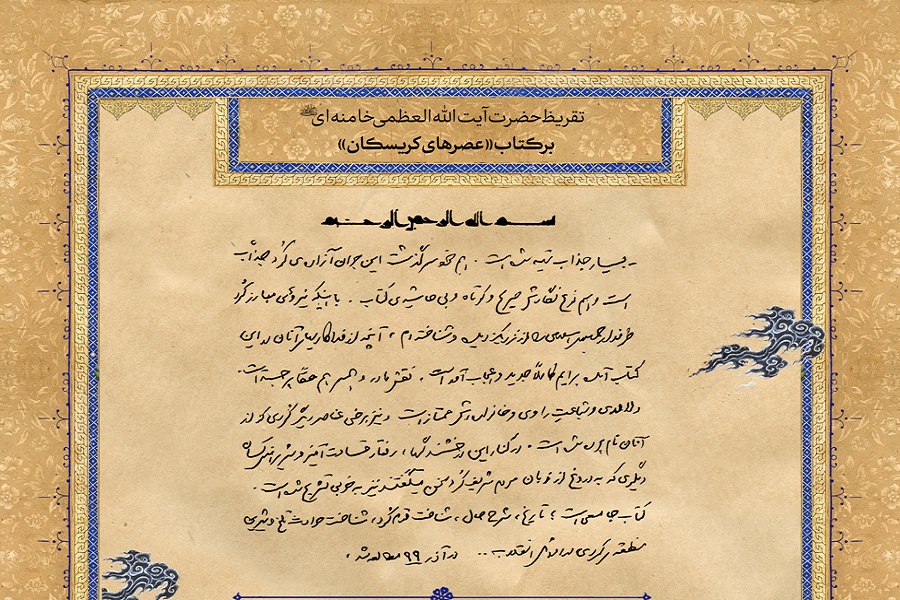 تقریظ حضرت آیت الله العظمی خامنه‌ای
بر کتاب «عصرهای کریسکان»
بسم الله الرحمن الرحیم
ـ بسیار جذاب تهیه شده است. هم خود سرگذشت این جوان آزاده‌ی کُرد جذّاب
است و هم نوع نگارش صریح و کوتاه و بی حاشیه‌ی کتاب. با اینکه نیروهای مبارز کُرد
طرفدار جمهوری اسلامی را از نزدیک دیده و شناخته‌ام، آنچه از فداکاریهای آنان در این
کتاب آمده برایم کاملاً جدید و اعجاب آور است. نقش مادر و همسر هم حقّاً برجسته است.
دلاوری و شجاعت راوی و خانواده‌اش ممتاز است و نیز برخی عناصر دیگر کُردی که از
آنان نام برده شده است. در کنار این درخشندگیها، رفتار قساوت آمیز و شریرانه‌ی کسان
دیگری که به دروغ از زبان مردم شریف کُرد سخن میگفتند نیز به خوبی تشریح شده است.
کتاب جامعی است؛ تاریخ، شرح حال، شناخت قوم کُرد، شناخت حوادث تلخ و شیرین
منطقه‌ی کردی در اوائل انقلاب .. در آذر ۹۹ مطالعه شد.